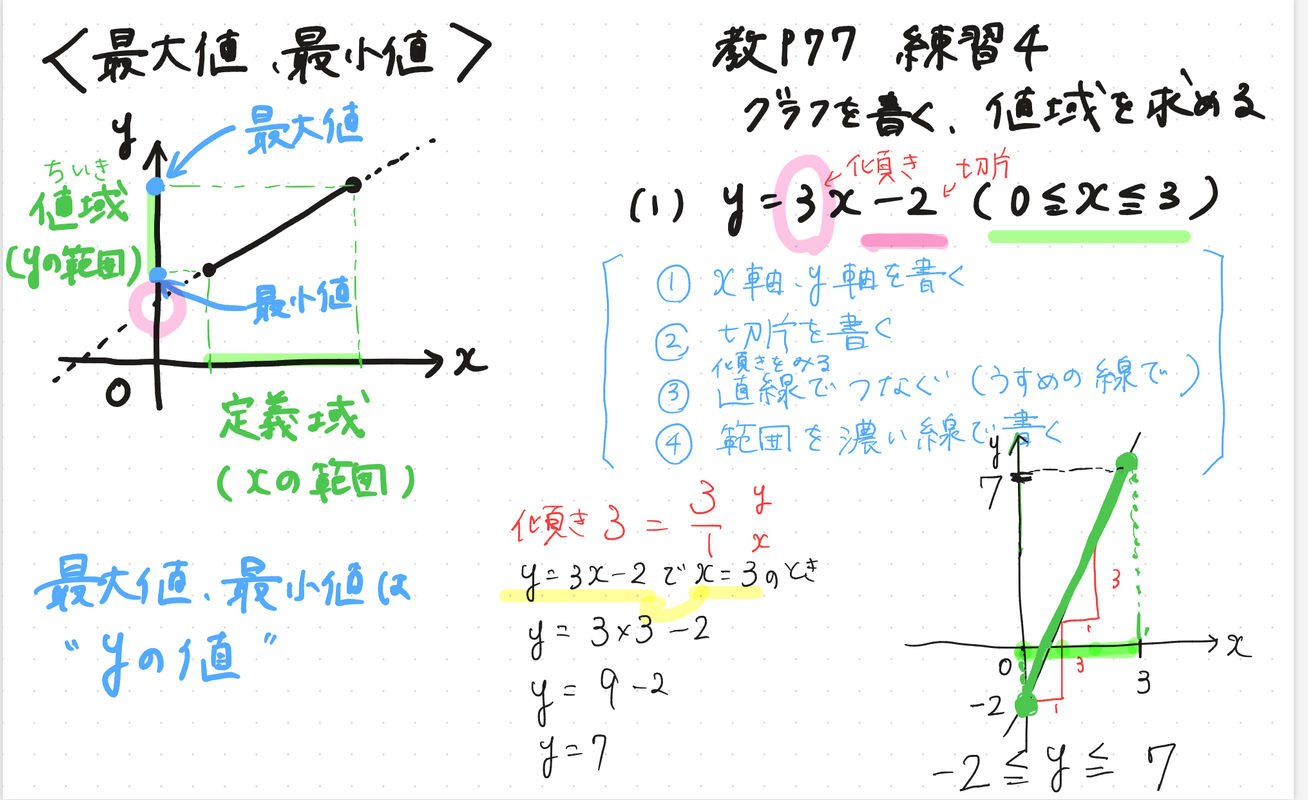 〈最大値、最小値〉
y
最大値
ちいき
値域
(yの範囲)
最小値
0
x
定義域
(xの範囲)
最大値、最小値は
“yの値”
教P77 練習4
グラフを書く、値域を求める
傾き 切片
(1) y=3x-2 (0≦x≦3)
① x軸、y軸を書く
② 切片を書く
傾きをみる
③ 直線でつなぐ(うすめの線で)
④ 範囲を濃い線で書く
傾き3=3/1 y x
y=3x-2でx=3のとき
y=3×3-2
y=9-2
y=7
y
7
3
1
0
3
x
3
-2
1
-2≦y≦7